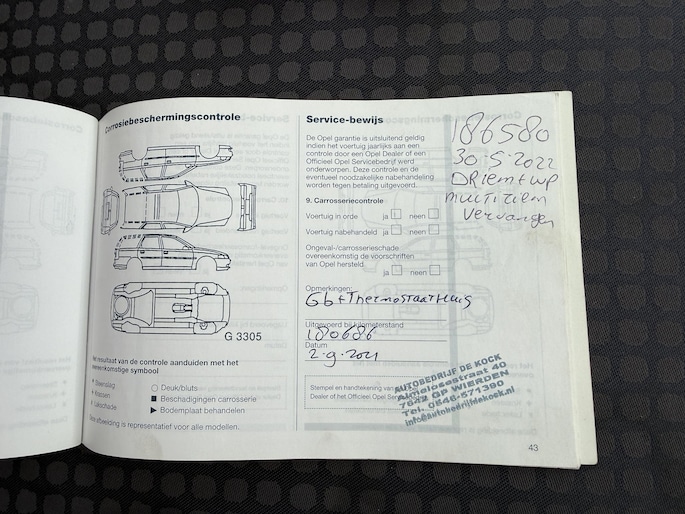 Corrosiebeschermingscontrole
G 3305
Het resultaat van de controle aanduiden met het
overeenkomstige symbool
Steenslag
Krassen
Lakschade
Deuk/bluts
Beschadigingen carrosserie
Bodemplaat behandelen
Deze afbeelding is representatief voor alle modellen.
Service-bewijs
De Opel garantie is uitsluitend geldig
indien het voertuig jaarlijks aan een
controle door een Opel Dealer of een
Officieel Opel Servicebedrijf werd
onderworpen. Deze controle en de
eventueel noodzakelijke nabehandeling
worden tegen betaling uitgevoerd.
9. Carrosseriecontrole
Voertuig in orde ja neen
Voertuig nabehandeld ja neen
Ongeval-/carrosserieschade
overeenkomstig de voorschriften
van Opel hersteld.
ja neen
Opmerkingen:
Gb + Thermostaathuis
Uitgevoerd bij kilometerstand
180686
Datum
2-9-2021
Stempel en handtekening van
Dealer of het Officieel Opel
AUTOBEDRIJF DE KOCK
Almelosestraat 40
7642 GP WIERDEN
Tel. 0546-571390
info@autobedrijfdekock.nl
186580
30-5-2022
DRiem + wp
multiriem
Vervangen
43